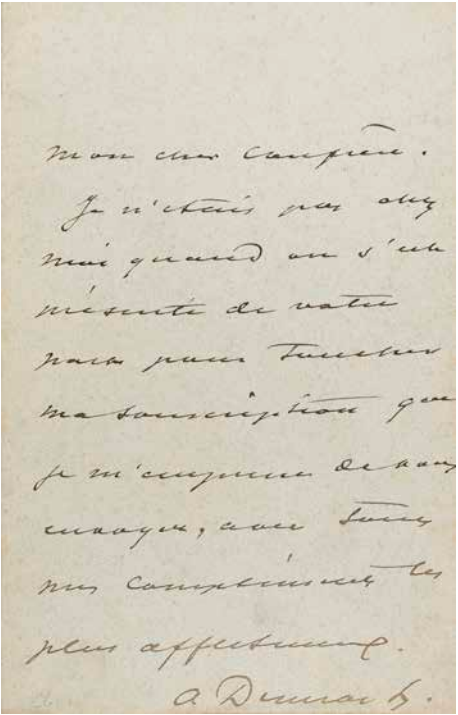 Mon cher confrère.
Je n'étais pas chez
moi quand on s'est
présenté de votre
part pour toucher
ma souscription que
je m'empresse de vous
envoyer, avec tous
mes compliments les
plus affectueux.
A Dumas f.